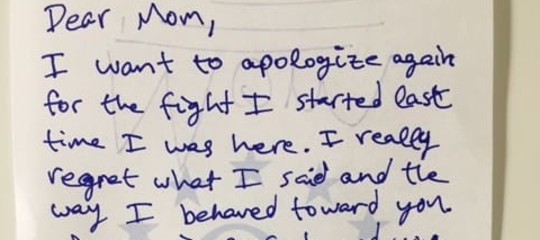 Dear Mom,
I want to apologize again
for the fight I started last
time I was here. I really
regret what I said and the
way I behaved toward you.